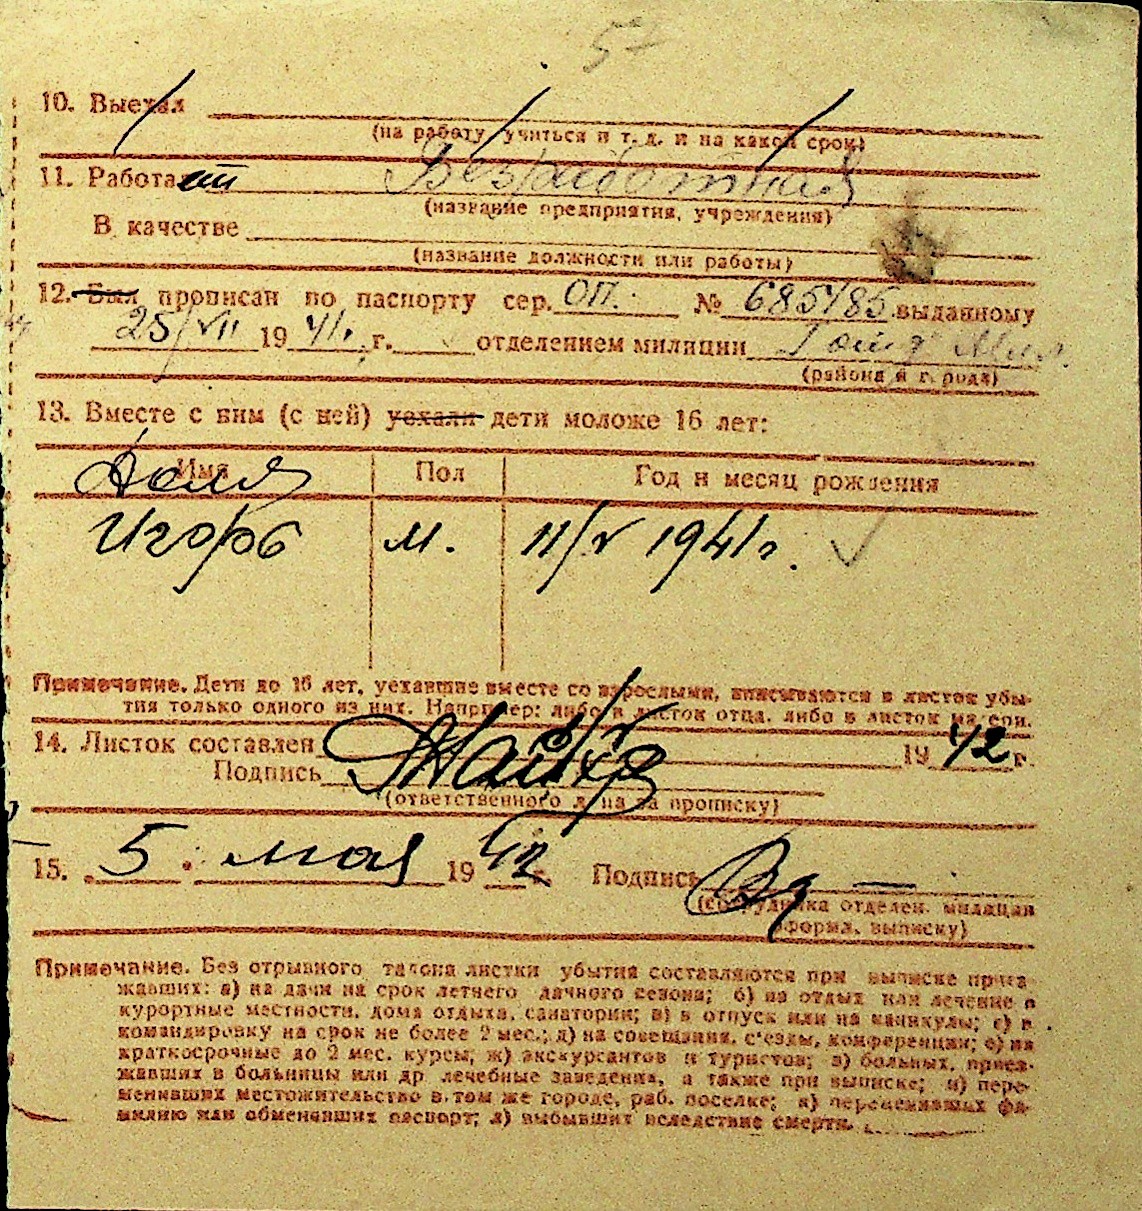 57
10. Выехал
(на работу, учиться и т. д. и на какой срок)
11. Работает Безработная
(название предприятия, учреждения)
В качестве
(название должности или работы)
12. Был прописан по паспорту сер. ОП. № 685785 выданному
25/VII 1941 г. отделением милиции
(района и города)
13. Вместе с ним (с ней) уехали дети моложе 16 лет:
Имя Пол Год и месяц рождения
Игорь м. 11/V 1941 г.
Примечание. Дети до 16 лет, уехавшие вместе со взрослыми, вписываются в листок убы-
тия только одного из них. Например: либо в листок отца, либо в листок матери.
14. Листок составлен 1942 г.
Подпись
(ответственного лица за прописку)
15. 5 мая 1942 г. Подпись
(сотрудника отделен. милиции
оформл. выписку)
Примечание. Без отрывного талона листки убытия составляются при выписке приез-
жавших: а) на дачи на срок летнего дачного сезона; б) на отдых или лечение в
курортные местности, дома отдыха, санатории; в) в отпуск или на каникулы; г) в
командировку на срок не более 2 мес.; д) на совещания, съезды, конференции; е) на
краткосрочные до 2 мес. курсы; ж) экскурсантов и туристов; з) больных, приез-
жавших в больницы или др лечебные заведения, а также при выписке; и) пере-
менивших местожительство в том же городе, раб. поселке; к) переменивших фа-
милию или обменявших паспорт; л) выбывших вследствие смерти.